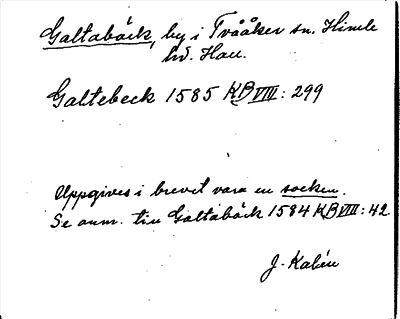 Galtabäck, by i Tvååker sn. Himle
hd. Hall.
Galtebeck 1585 KB VIII: 299
Uppgives i brevet vara en socken.
Se anm. till Galtabäck 1584 KB VIII: 42
J. Kalén